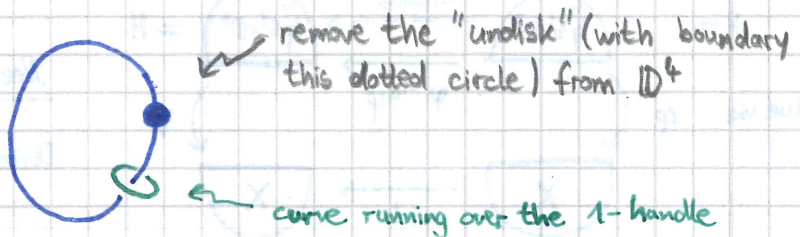 remove the "undisk" (with boundary
this dotted circle) from D⁴
curve running over the 1-handle